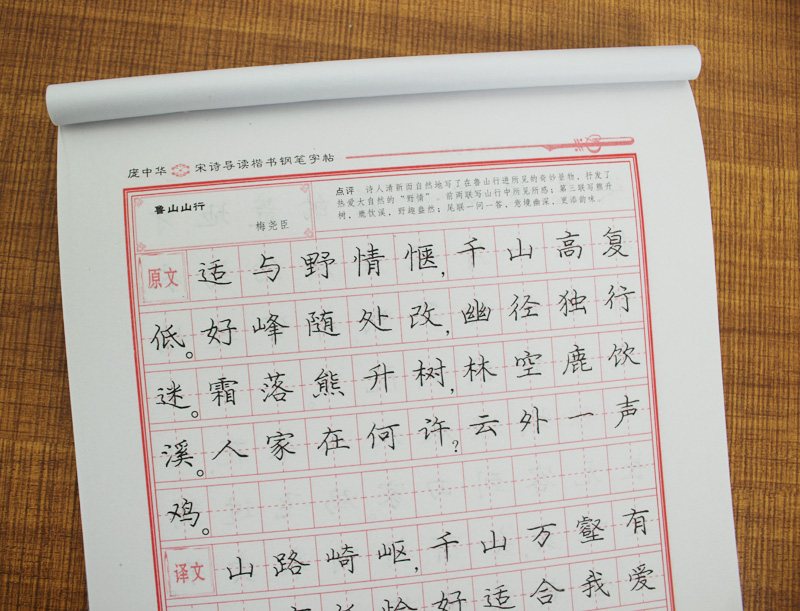 庞中华 宋诗导读楷书钢笔字帖
鲁山山行
梅尧臣
点评 诗人清新而自然地写了在鲁山行进所见的奇妙景物，抒发了
热爱大自然的“野情”。前两联写山行中所见所感；第三联写熊升
树，鹿饮溪，野趣盎然；尾联一问一答，意境幽深，更添韵味。
原文 适与野情惬，千山高复
低。好峰随处改，幽径独行
迷。霜落熊升树，林空鹿饮
溪。人家在何许？云外一声
鸡。
译文 山路崎岖，千山万壑有
恰好适合我爱